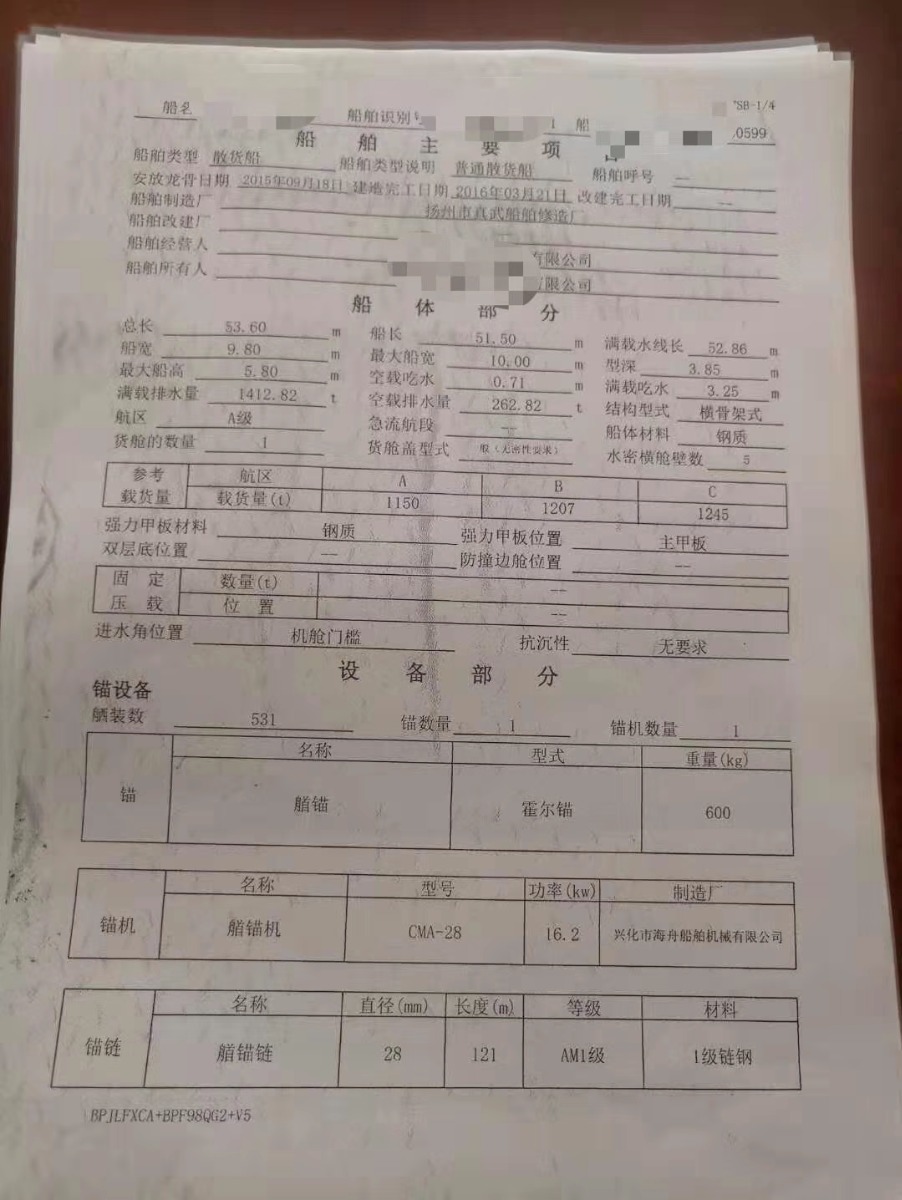 船名 船舶识别号 船 SB-1/4
0599
船舶主要项目
船舶类型 散货船 船舶类型说明 普通散货船 船舶呼号 --
安放龙骨日期 2015年09月18日 建造完工日期 2016年03月21日 改建完工日期 --
船舶制造厂 扬州市真武船舶修造厂
船舶改建厂 --
船舶经营人 有限公司
船舶所有人 有限公司
船体部分
总长 53.60 m 船长 51.50 m 满载水线长 52.86 m
船宽 9.80 m 最大船宽 10.00 m 型深 3.85 m
最大船高 5.80 m 空载吃水 0.71 m 满载吃水 3.25 m
满载排水量 1412.82 t 空载排水量 262.82 t 结构型式 横骨架式
航区 A级 急流航段 -- 船体材料 钢质
货舱的数量 1 货舱盖型式 般(无密性要求) 水密横舱壁数 5
参考载货量 航区 A B C
载货量(t) 1150 1207 1245
强力甲板材料 钢质 强力甲板位置 主甲板
双层底位置 -- 防撞边舱位置 --
固定压载 数量(t) --
位置 --
进水角位置 机舱门槛 抗沉性 无要求
设备部分
锚设备
舾装数 531 锚数量 1 锚机数量 1
锚 名称 型式 重量(kg)
艏锚 霍尔锚 600
锚机 名称 型号 功率(kw) 制造厂
艏锚机 CMA-28 16.2 兴化市海舟船舶机械有限公司
锚链 名称 直径(mm) 长度(m) 等级 材料
艏锚链 28 121 AM1级 1级链钢
BPJLFXCA+BPF98QG2+V5